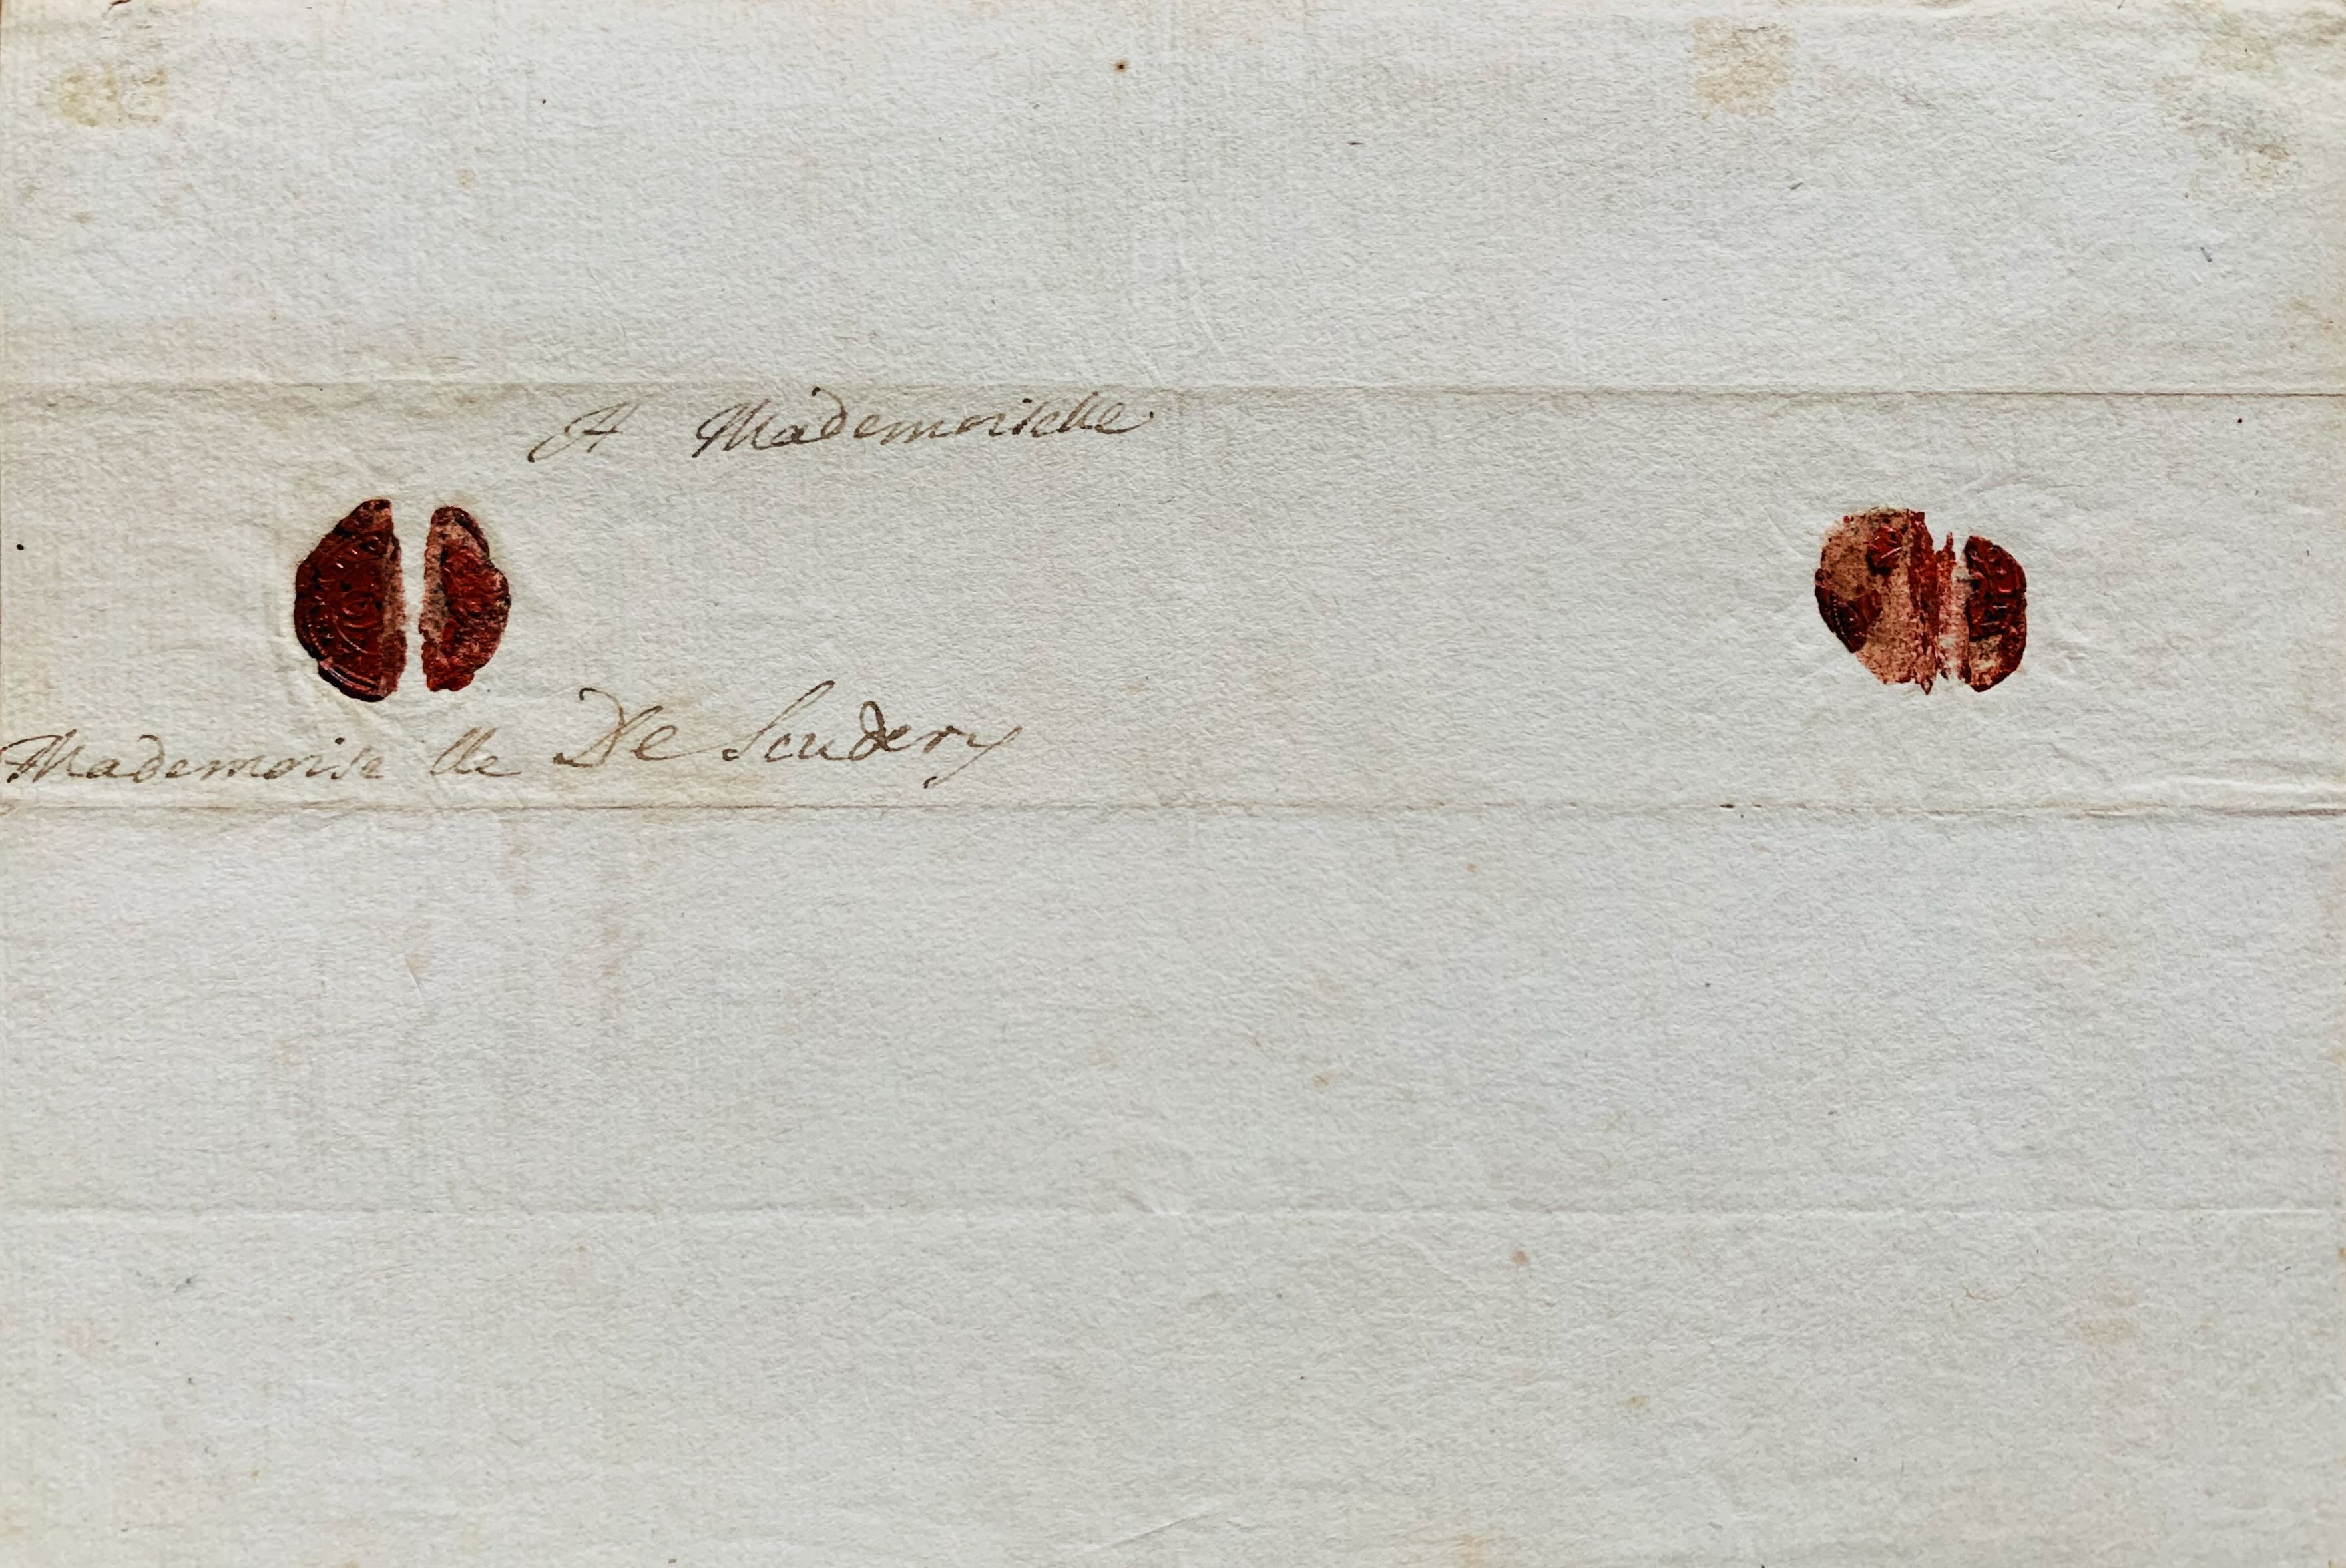 A Mademoiselle
Mademoise lle De Scudery